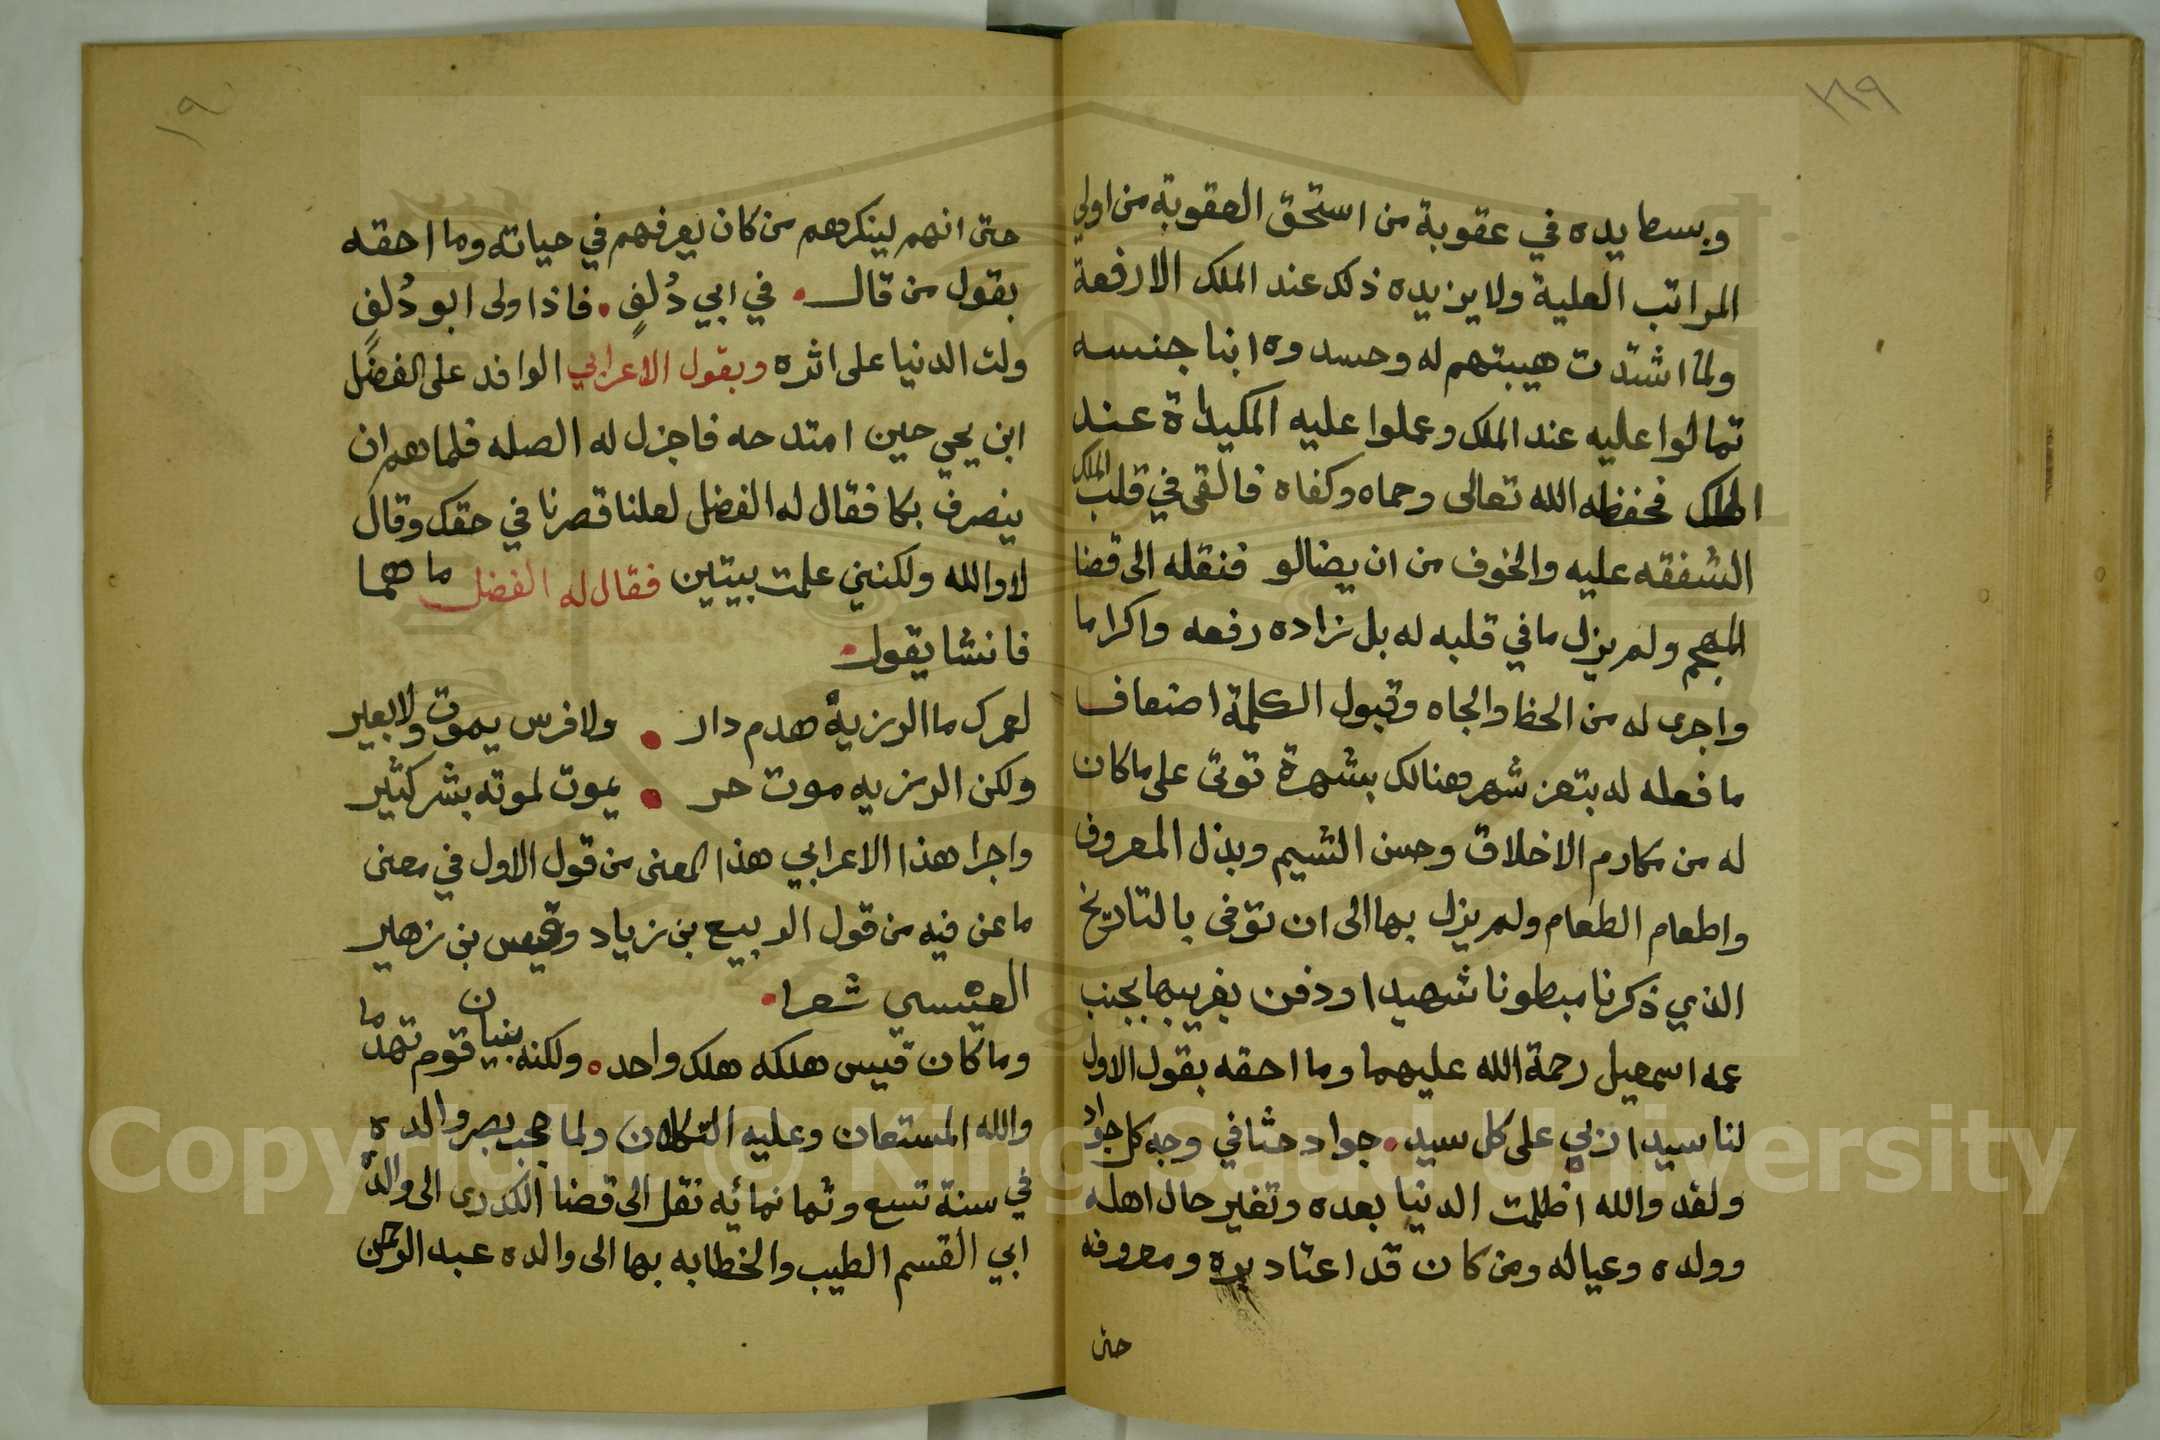 ١٨٩
وبسط يده في عقوبة من استحق العقوبة من اولي
المراتب العلية ولا يزيده ذلك عند الملك الا رفعة
ولما اشتدت هيبتهم له وحسدوه ابنا جنسه
تمالوا عليه عند الملك وعملوا عليه المكيدة عند
الملك فحفظه الله تعالى وحماه وكفاه فالقى في قلب الملك
الشفقه عليه والخوف من ان يضالو فنقله الى قضا
المهجم ولم يزل ما في قلبه له بل زاده رفعه واكراما
واجرى له من الحظ والجاه وقبول الكلمة اضعاف
ما فعله له بتعز شهر هنالك بشهرة توتى على ما كان
له من مكارم الاخلاق وحسن الشيم وبذل المعروف
واطعام الطعام ولم يزل بها الى ان توفى بالتاريخ
الذي ذكرنا مبطونا شهيدا ودفن بغريبها بجنب
عمه اسمعيل رحمة الله عليهما وما احقه بقول الاول
لنا سيد اربى على كل سيد • جواد حثا في وجه كل جواد
ولقد والله اظلمت الدنيا بعده وتغير حال اهله
وولده وعياله ومن كان قد اعتاد بره ومعروفه
حتى
١٩٠
حتى انهم لينكرهم من كان يعرفهم في حياته وما احقه
بقول من قال • في ابي دُلفٍ • فاذا ولى ابو دُلفٍ
ولت الدنيا على اثره وبقول الاعرابي الوافد على الفضل
ابن يحي حين امتدحه فاجزل له الصله فلما هم ان
ينصرف بكا فقال له الفضل لعلنا قصرنا في حقك وقال
لا والله ولكنني علمت بيتين فقال له الفضل ما هما
فانشا يقول •
لعمرك ما الرزية هدم دار • ولا فرس يموت ولا بعير
ولكن الرزيه موت حر • يموت لموته بشر كثير
واجرا هذا الاعرابي هذا المعنى من قول الاول في معنى
ما عن فيه من قول الربيع بن زياد وقيس بن زهير
العبسي شعرا •
وما كان قيس هلكه هلك واحد • ولكنه بنيان قوم تهدما
والله المستعان وعليه التكلان ولما حجب بصر والده
في سنة تسع وثمانمائيه نقل الى قضا الكدرى الى والده
ابي القسم الطيب والخطابه بها الى والده عبد الرحمن
Copyright © King Saud University